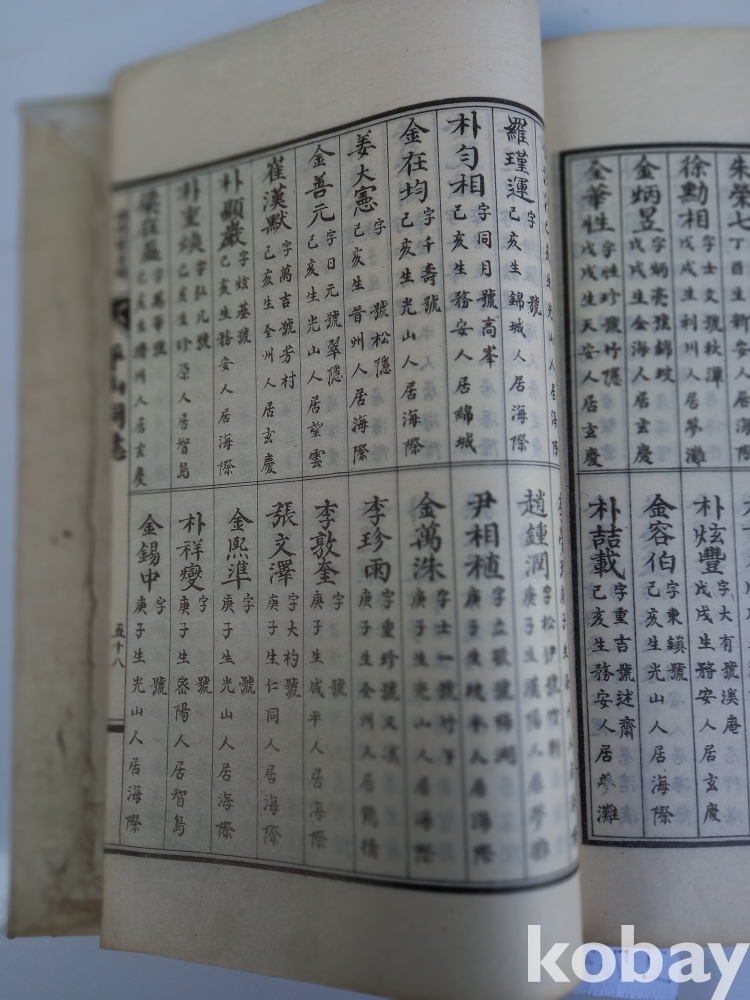 朱榮七 丁酉生新安人居
徐勳相 字士文號秋潭 戊戌生利川人居夢灘
金炳昱 字炳亮號錦坡 戊戌生金海人居海際
金華性 字性珍號竹隱 戊戌生天安人居玄慶
朴炫豐 字大有號溪庵 戊戌生務安人居玄慶
金容伯 字東鎭號 己亥生光山人居海際
朴喆載 字重吉號述齋 己亥生務安人居夢灘
羅瑾運 字 號 己亥生錦城人居海際
朴勻相 字同月號高峯 己亥生務安人居綿城
金在均 字千壽號 己亥生光山人居海際
姜大憲 字 號松隱 己亥生晉州人居海際
金善元 字日元號翠隱 己亥生光山人居望雲
崔漢默 字萬吉號芳村 己亥生全州人居玄慶
朴顯巖 字炫基號 己亥生務安人居海際
朴重煥 字弘凡號 己亥生珍原人居智島
梁在 字萬華號 己亥生濟州人居玄慶
趙鍾潤 字松伊號竹 庚子生漢陽人居夢灘
尹相植 字 號梅湖 庚子生坡平人居海際
金萬洙 字士一號竹下 庚子生光山人居海際
李珍雨 字重珍號又溪 庚子生全州人居鶴橋
李敦奎 字 號 庚子生咸平人居海際
張文澤 字大杓號 庚子生仁同人居海際
金熙準 字 號 庚子生光山人居海際
朴祥燮 字 號 庚子生密陽人居智島
金錫中 字 號 庚子生光山人居海際
五十八
kobay